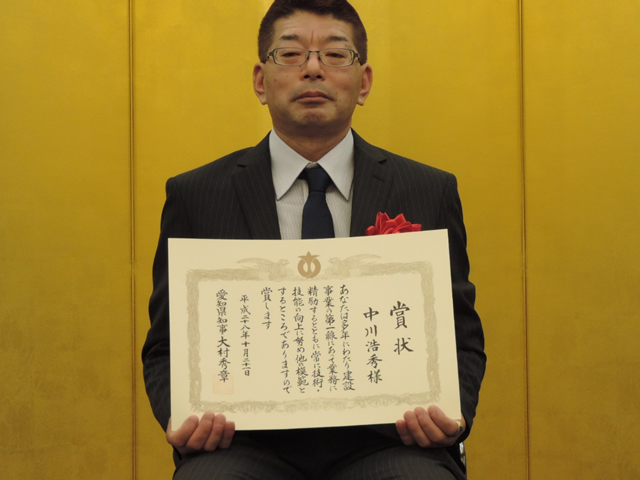 賞状
中川浩秀様
あなたは多年にわたり建設
事業の第一線にあって業務に
精励するとともに常に技術・
技能の向上に努め他の模範と
するところでありますので
賞します
平成二十八年十月二十一日
愛知県知事大村秀章